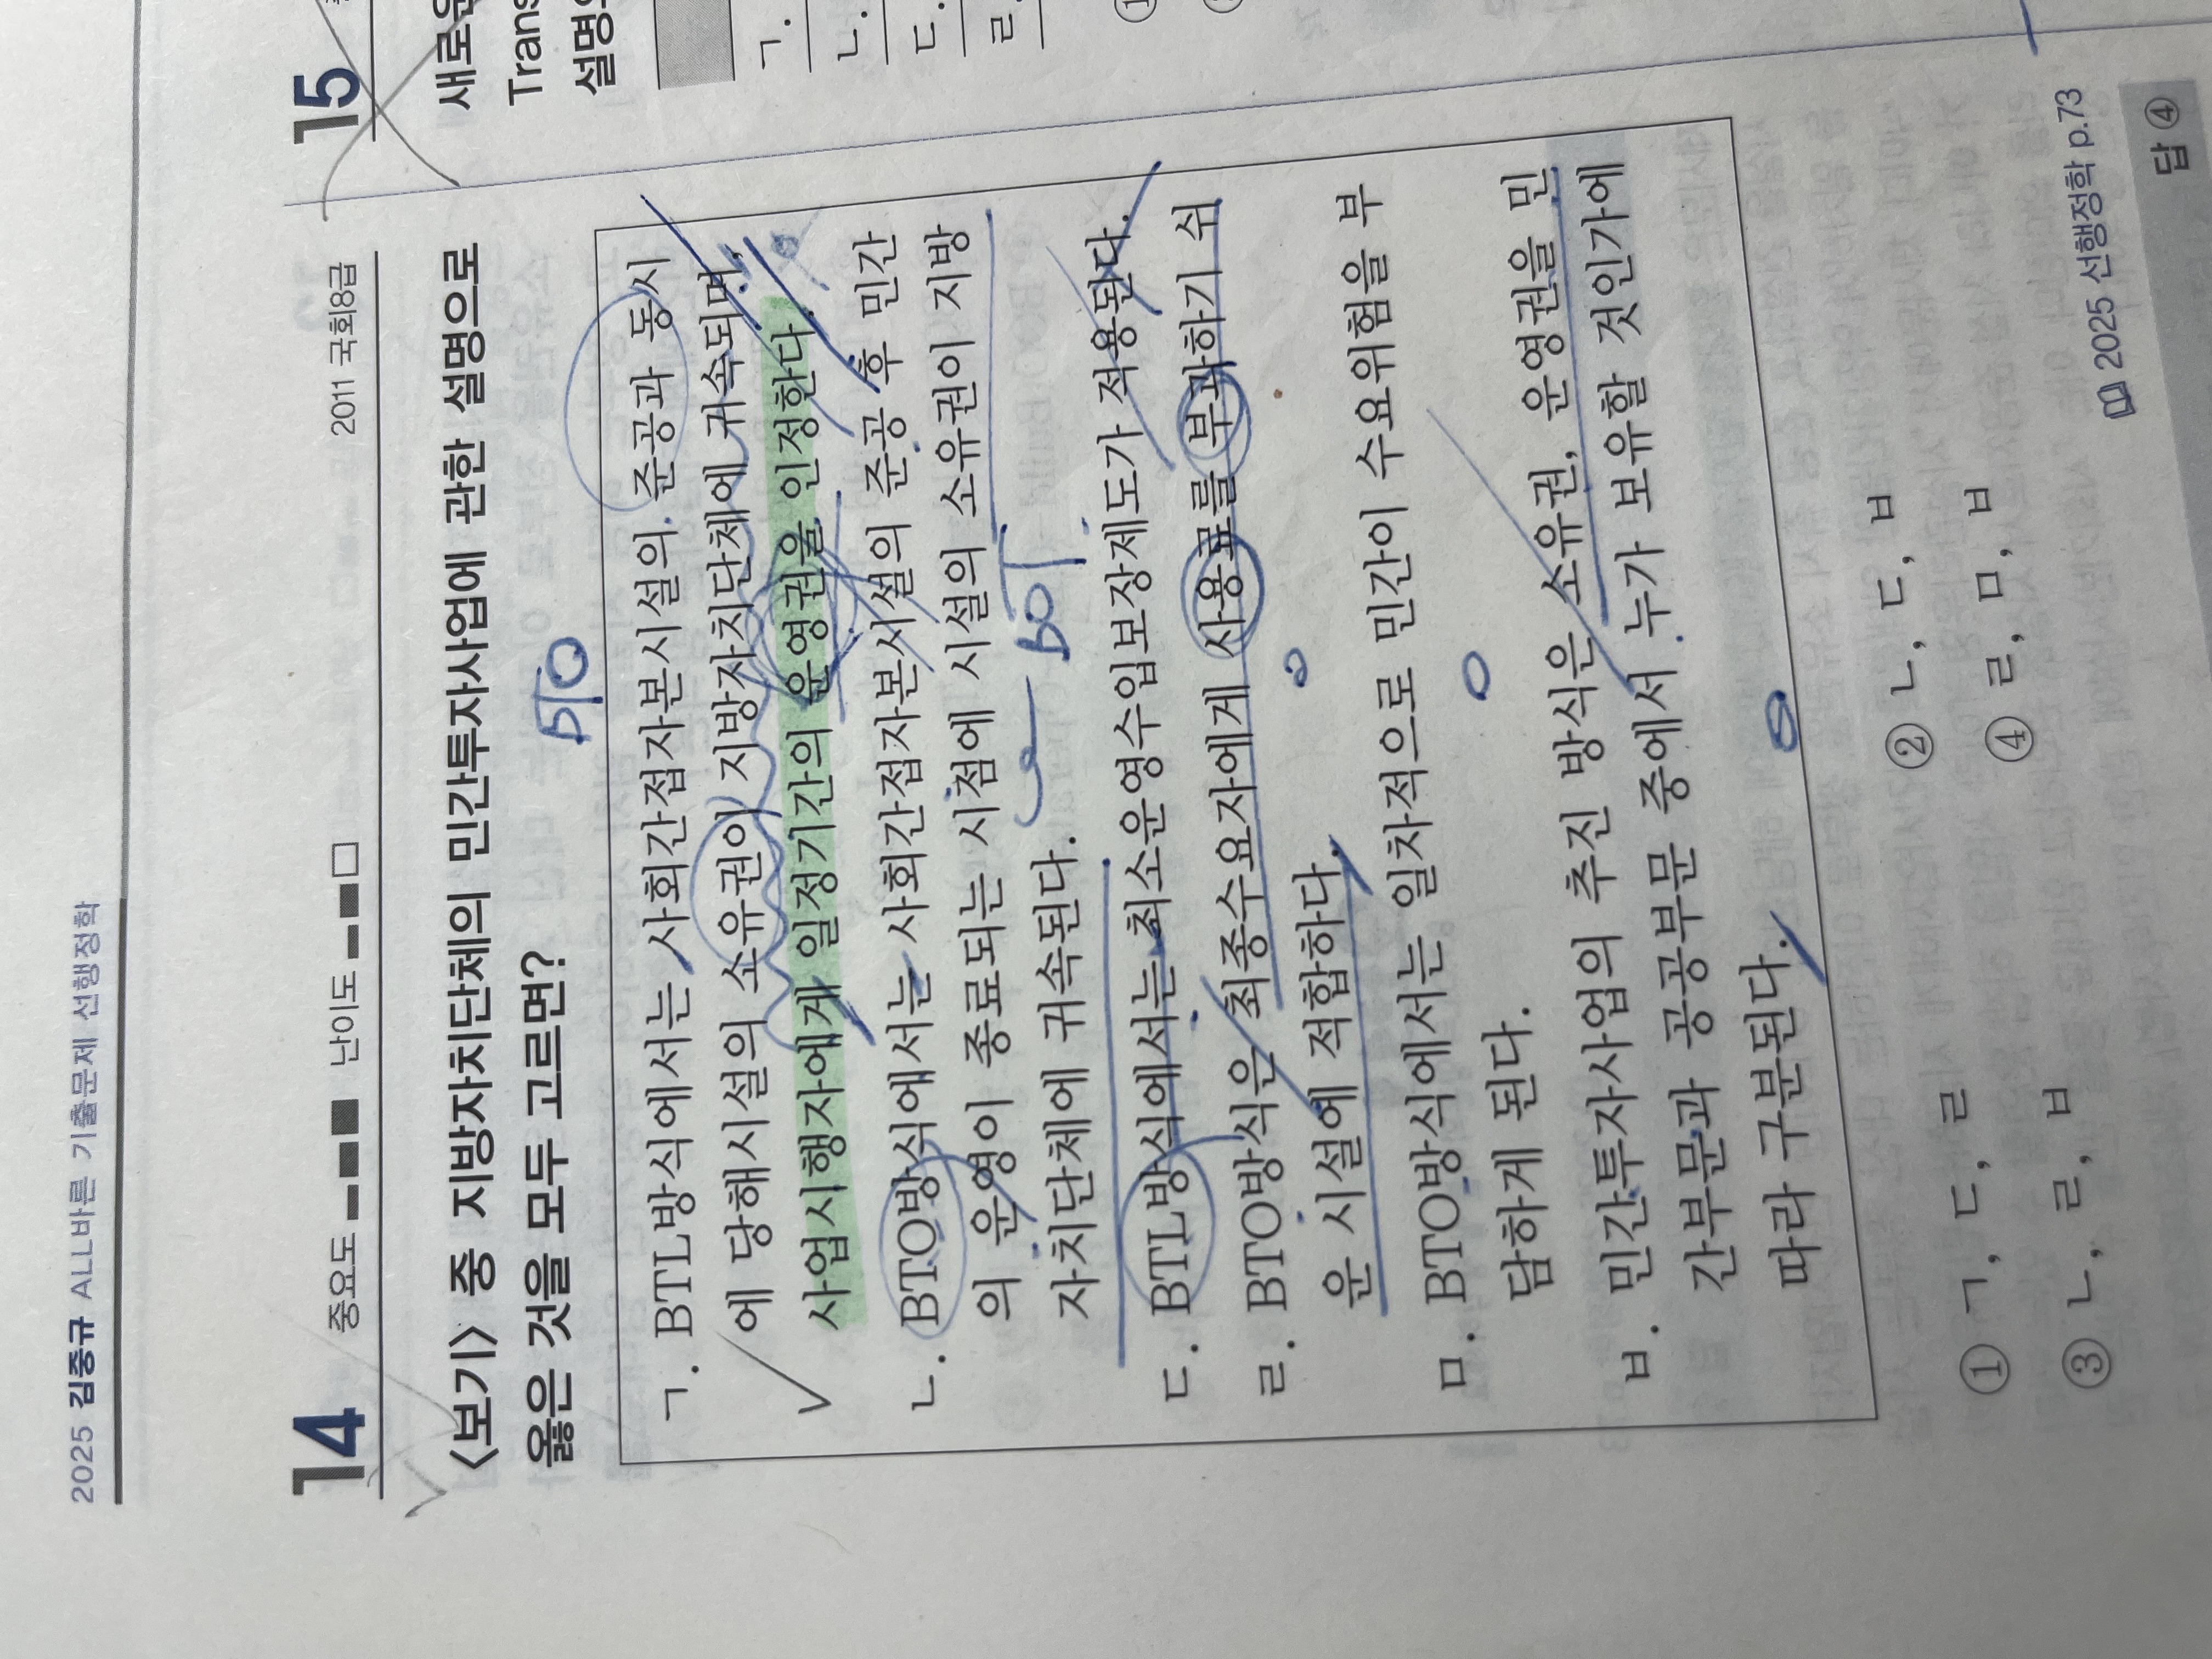 2025 김중규 ALL바른 기출문제 선행정학
14
중요도 난이도 2011 국회8급
<보기> 중 지방자치단체의 민간투자사업에 관한 설명으로
옳은 것을 모두 고르면?
BTO
ㄱ. BTL방식에서는 사회간접자본시설의 준공과 동시
에 당해시설의 소유권이 지방자치단체에 귀속되며,
사업시행자에게 일정기간의 운영권을 인정한다.
ㄴ. BTO방식에서는 사회간접자본시설의 준공 후 민간
의 운영이 종료되는 시점에 시설의 소유권이 지방
자치단체에 귀속된다.
BOT
ㄷ. BTL방식에서는 최소운영수입보장제도가 적용된다.
ㄹ. BTO방식은 최종수요자에게 사용료를 부과하기 쉬
운 시설에 적합하다.
ㅁ. BTO방식에서는 일차적으로 민간이 수요위험을 부
담하게 된다.
ㅂ. 민간투자사업의 추진 방식은 소유권, 운영권을 민
간부문과 공공부문 중에서 누가 보유할 것인가에
따라 구분된다.
① ㄱ, ㄷ, ㄹ ② ㄴ, ㄷ, ㅂ
③ ㄴ, ㄹ, ㅂ ④ ㄹ, ㅁ, ㅂ
2025 선행정학 p.73
답 ④
15
새로운
Trans
설명으
ㄱ.
ㄴ.
ㄷ.
ㄹ.